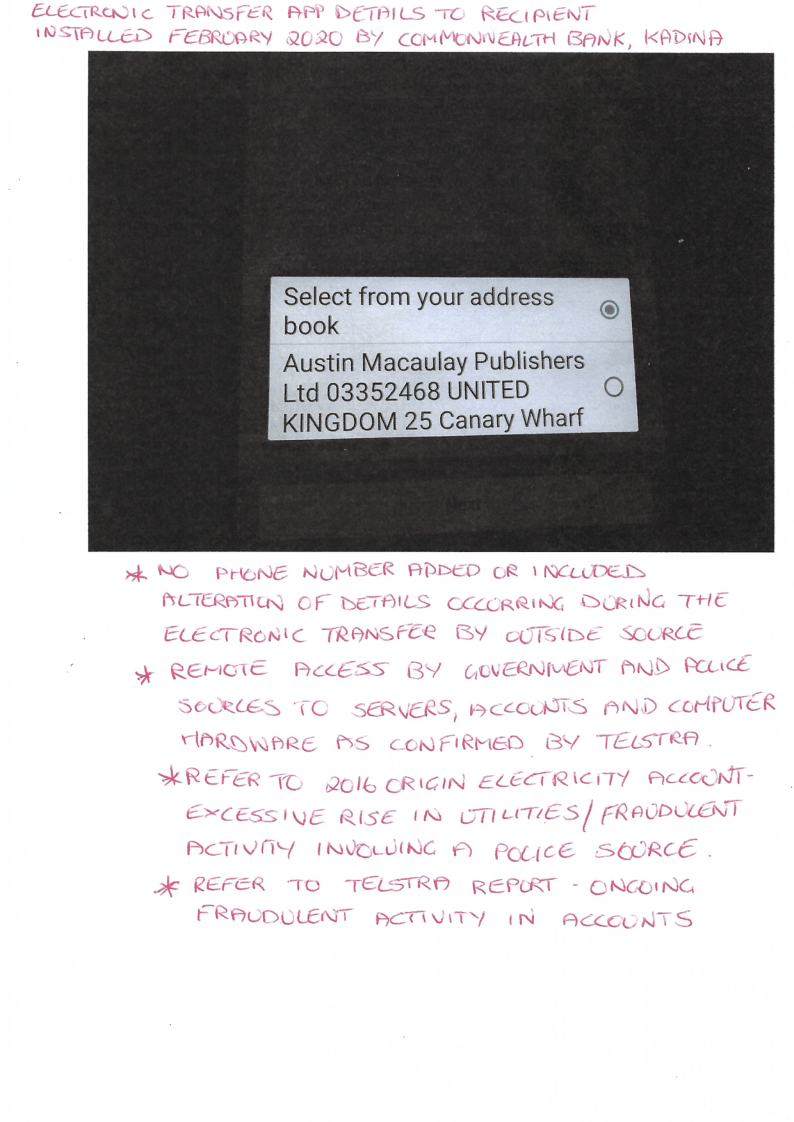 ELECTRONIC TRANSFER APP DETAILS TO RECIPIENT
INSTALLED FEBRUARY 2020 BY COMMONWEALTH BANK, KADINA
Select from your address
book
Austin Macaulay Publishers
Ltd 03352468 UNITED
KINGDOM 25 Canary Wharf
Next
* NO PHONE NUMBER ADDED OR INCLUDED
ALTERATION OF DETAILS OCCURRING DURING THE
ELECTRONIC TRANSFER BY OUTSIDE SOURCE
* REMOTE ACCESS BY GOVERNMENT AND POLICE
SOURCES TO SERVERS, ACCOUNTS AND COMPUTER
HARDWARE AS CONFIRMED BY TELSTRA.
* REFER TO 2016 ORIGIN ELECTRICITY ACCOUNT-
EXCESSIVE RISE IN UTILITIES/FRAUDULENT
ACTIVITY INVOLVING A POLICE SOURCE.
* REFER TO TELSTRA REPORT - ONGOING
FRAUDULENT ACTIVITY IN ACCOUNTS